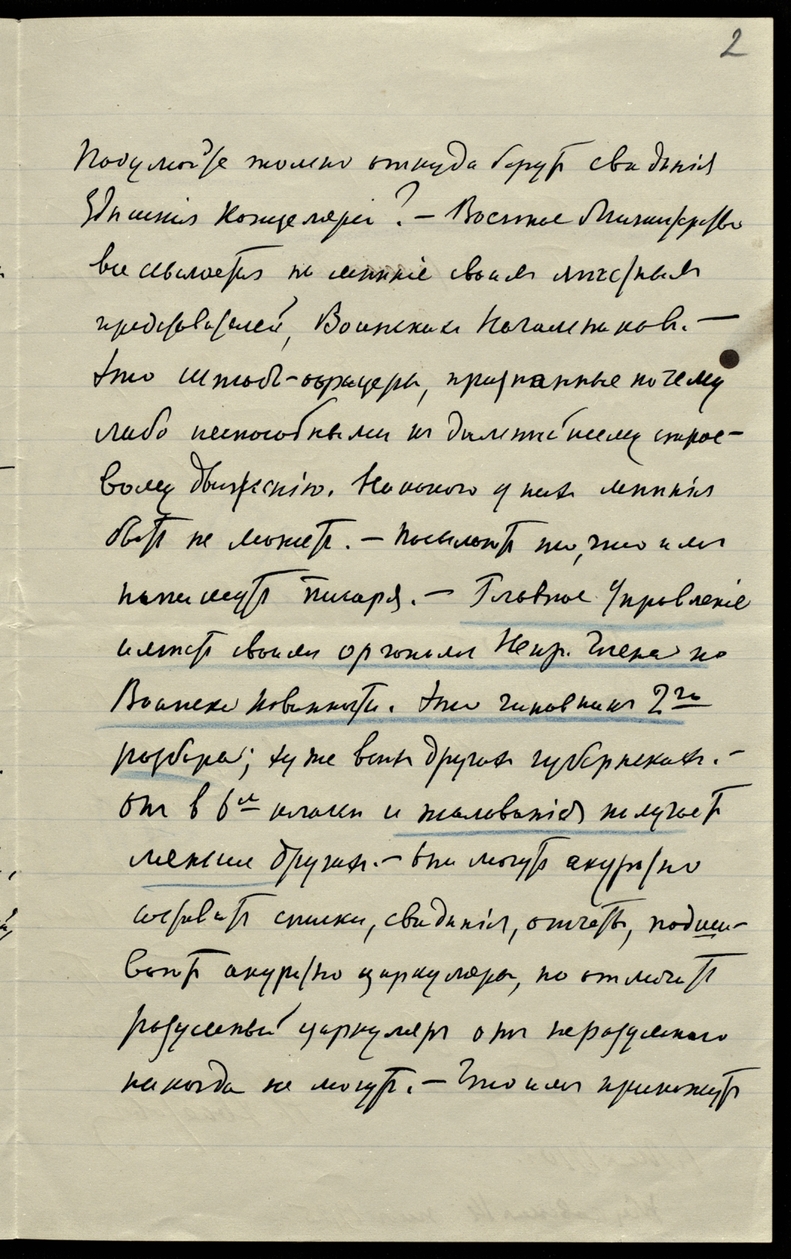 2
Подумайте только откуда берутъ свѣдѣнія
Здѣшнія Канцеляріи? — Военное Министерство
все ссылается на мнѣніе своихъ мѣстныхъ
представителей, Воинскихъ Начальниковъ. —
Это штабъ-офицеры, признанные почему
либо неспособными къ дальнѣйшему строе-
вому движенію. Никакого у нихъ мнѣнія
быть не можетъ. — Посылаютъ то, что имъ
напишутъ писаря. — Главное Управленіе
имѣетъ своими органами Непр. Члена по
Воинск. повинности. Это чиновники 2го
разбора; хуже всѣхъ другихъ губернскихъ. —
Онъ в 6мъ классѣ и жалованія получаетъ
меньше другихъ. — Они могутъ акуратно
составить списки, свѣдѣнія, отчеты, подши-
ваютъ акуратно циркуляры, но отличить
разумный циркуляръ отъ неразумнаго
никогда не могутъ. — Что имъ прикажутъ